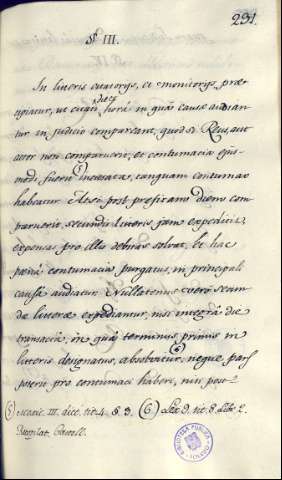 291.
§. III.
In litteris citatorijs, et monitorijs, præ
cipiatur, ut citati die, hora in quâ causæ audian
tur in judicio compareant, quod si Reus, aut
actor non comparuerit, et contumacia ejus
modi, fuerit incusata, tanquam contumax
habeatur. At si post prefixam diem com
paruerit, secundis litteris, jam expeditis,
expensas pro illis debitas solvat, et hac
pœna contumacia purgatus, in principali
causa audiatur. Nullotenus vero secun
dæ litteræ expediantur, nisi integra die
transacta, in quâ terminus primis in
litteris designatus, absolvatur, neque pars
poterit pro contumaci haberi, nisi post
(5) III. dict. tit. 4. §. 3. (6) Lex 9. tit. 8. Lib. 2.
Castell.
BIBLIOTECA PUBLICA
TOLEDO